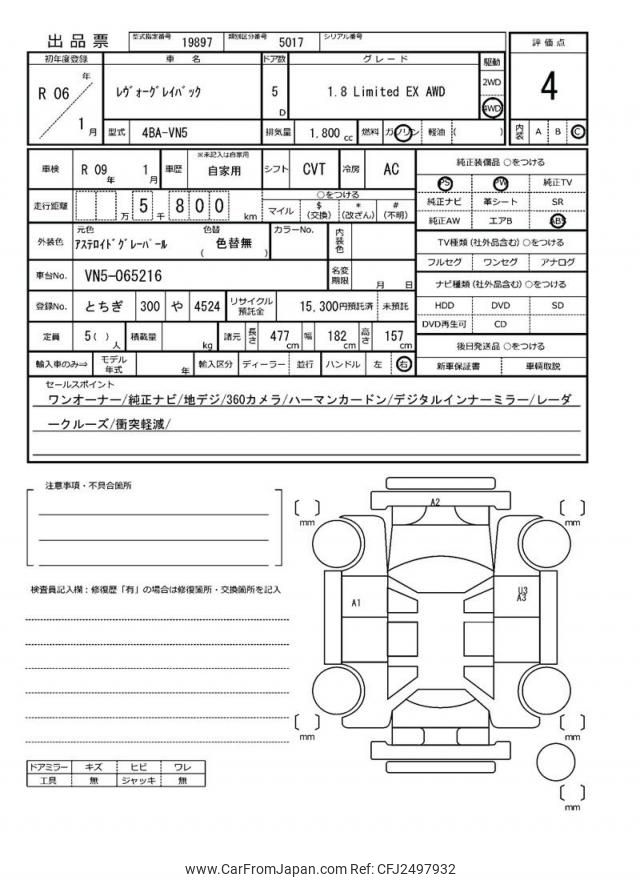 出品票 型式指定番号 19897 類別区分番号 5017 シリアル番号
初年度登録 車名 ドア数 グレード 駆動 評価点
R 06 年 1 月 レヴォーグレイバック 5 D 1.8 Limited EX AWD 2WD 4WD 4
型式 4BA-VN5 排気量 1.800 cc 燃料 ガソリン 軽油 ( ) 内装 A B C
車検 R 09 年 1 月 車歴 ※未記入は自家用 自家用 シフト CVT 冷房 AC
純正装備品 ○をつける
PS PW 純正TV
純正ナビ 革シート SR
純正AW エアB ABS
走行距離 万 5 千 8 0 0 km ○をつける
マイル $ (交換) * (改ざん) # (不明)
外装色 元色 アステロイドグレーパール 色替 ( 色替無 ) カラーNo. 内装色
TV種類 (社外品含む) ○をつける
フルセグ ワンセグ アナログ
車台No. VN5-065216 名変期限 月 日
ナビ種類 (社外品含む) ○をつける
HDD DVD SD
DVD再生可 CD
登録No. とちぎ 300 や 4524 リサイクル預託金 15,300円預託済 未預託
定員 5 ( ) 人 積載量 kg 諸元 長さ 477 cm 幅 182 cm 高さ 157 cm
後日発送品 ○をつける
新車保証書 車輌取説
輸入車のみ⇒ モデル年式 年 輸入区分 ディーラー 並行 ハンドル 左 右
セールスポイント
ワンオーナー/純正ナビ/地デジ/360カメラ/ハーマンカードン/デジタルインナーミラー/レーダ
ークルーズ/衝突軽減/
注意事項・不具合箇所
検査員記入欄：修復歴「有」の場合は修復箇所・交換箇所を記入
A2
A1
U3
A3
mm
mm
mm
mm
mm
ドアミラー キズ ヒビ ワレ
工具 無 ジャッキ 無
www.CarFromJapan.com Ref: CFJ2497932